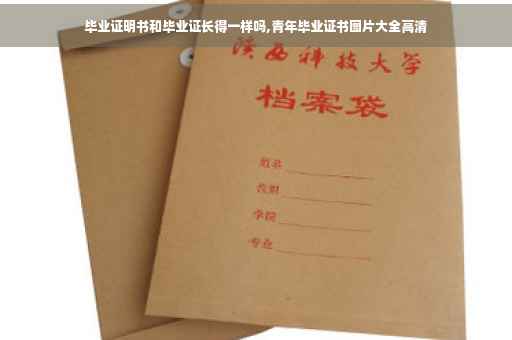 毕业证明书和毕业证长得一样吗,青年毕业证书图片大全高清
陕西科技大学
档案袋
姓名
学院
专业